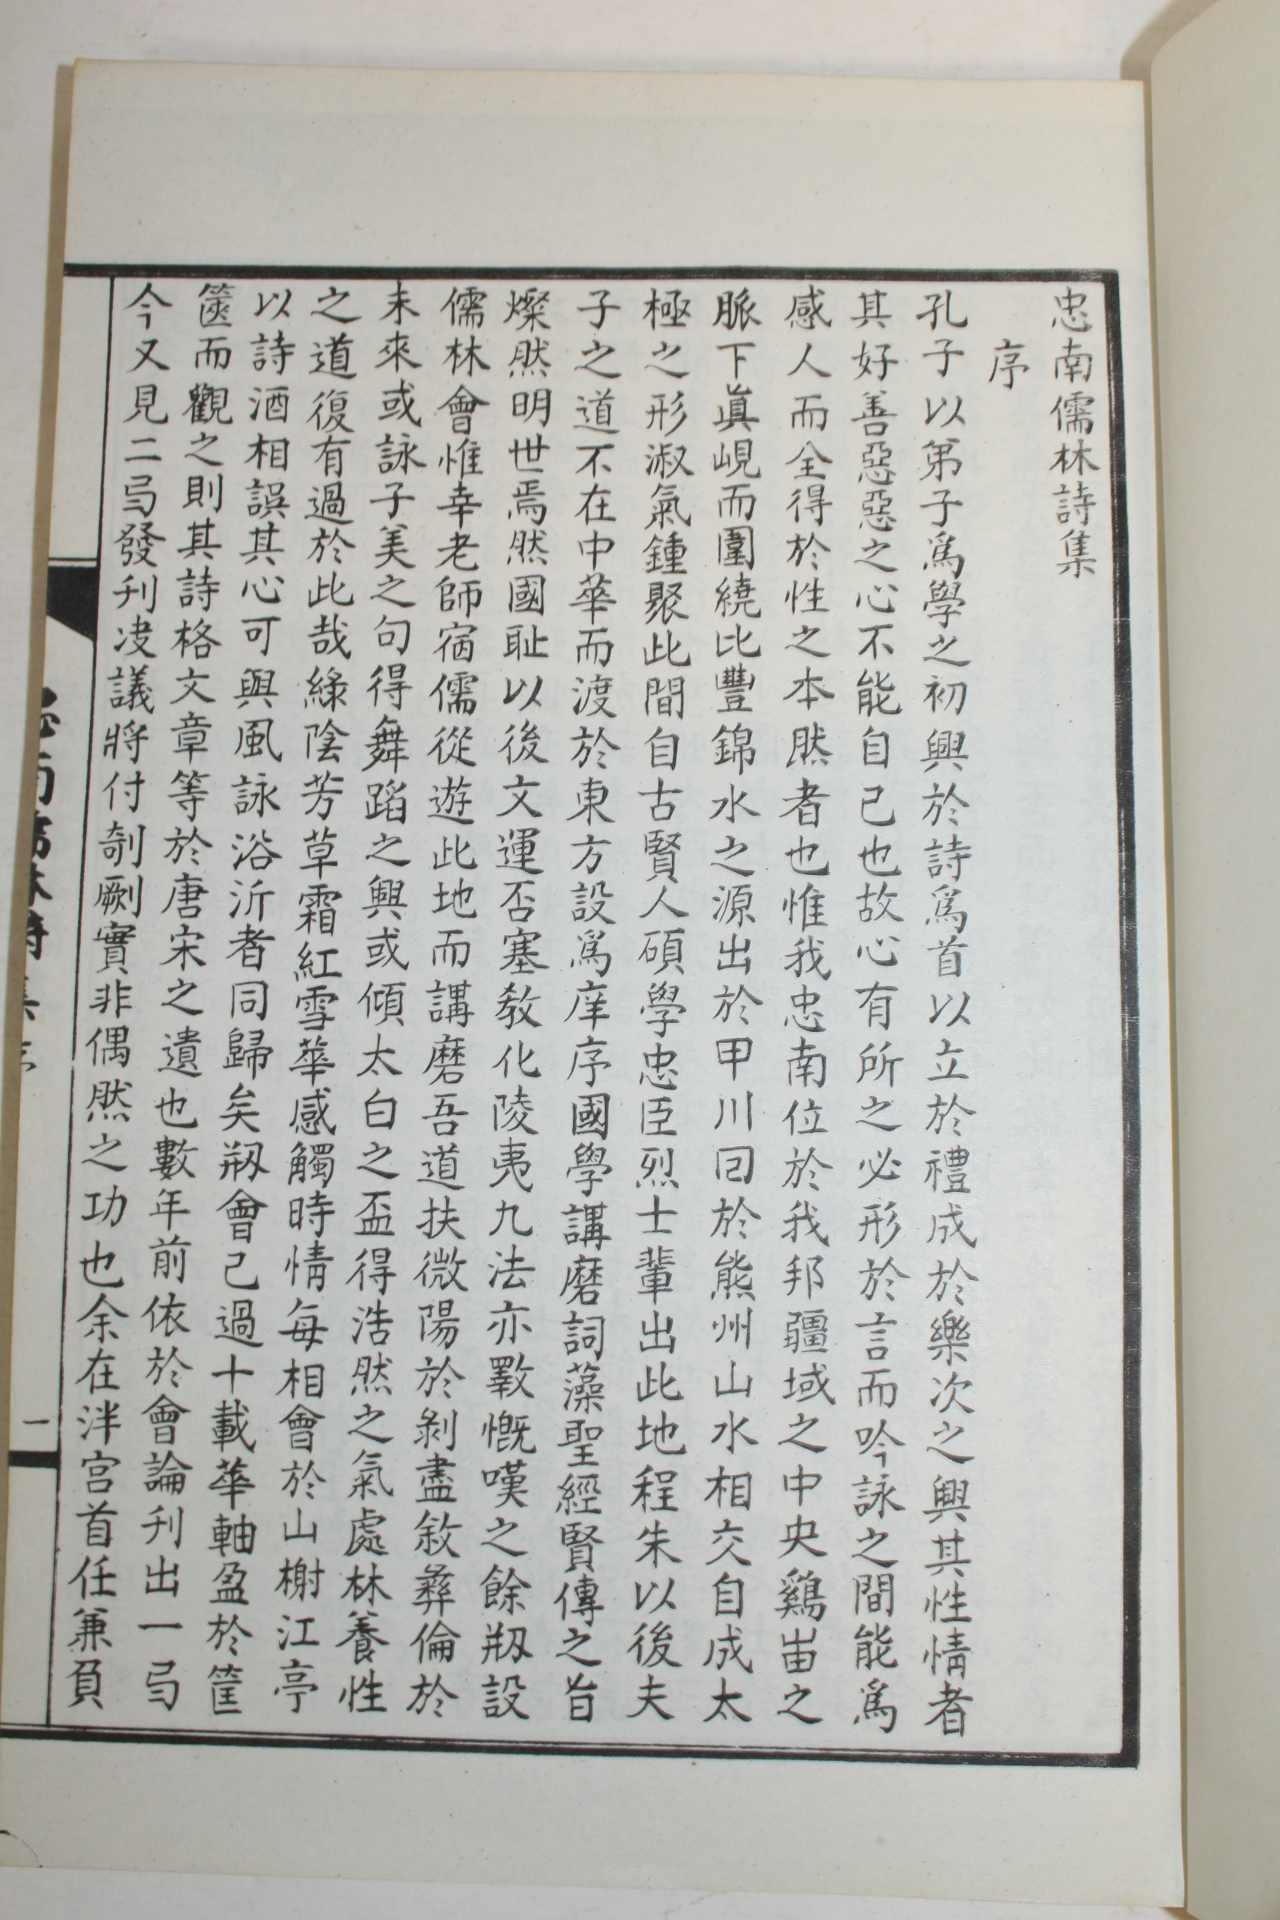 忠南儒林詩集
序
孔子以第子爲學之初興於詩爲首以立於禮成於樂次之興其性情者
其好善惡惡之心不能自己也故心有所之必形於言而吟詠之間能爲
感人而全得於性之本然者也惟我忠南位於我邦疆域之中央鷄峀之
脈下眞峴而圍繞比豐錦水之源出於甲川回於熊州山水相交自成太
極之形淑氣鍾聚此間自古賢人碩學忠臣烈士輩出此地程朱以後夫
子之道不在中華而渡於東方設爲庠序國學講磨詞藻聖經賢傳之旨
燦然明世焉然國耻以後文運否塞敎化陵夷九法亦斁慨嘆之餘刱設
儒林會惟幸老師宿儒從遊此地而講磨吾道扶微陽於剝盡敘彝倫於
未來或詠子美之句得舞蹈之興或傾太白之盃得浩然之氣處林養性
之道復有過於此哉綠陰芳草霜紅雪華感觸時情每相會於山榭江亭
以詩酒相誤其心可興風詠浴沂者同歸矣刱會己過十載華軸盈於筐
篋而觀之則其詩格文章等於唐宋之遺也數年前依於會論刊出一弓
今又見二弓發刊决議將付剞劂實非偶然之功也余在泮宮首任兼負
一